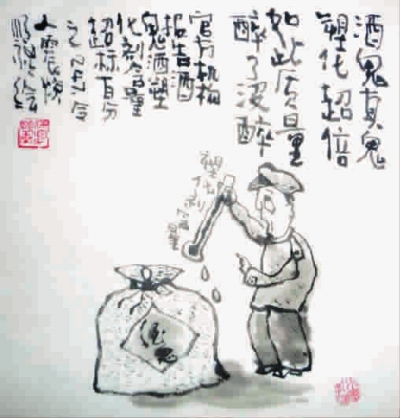 酒鬼真鬼
塑化超倍
如此质量
醉了没醉
官方机构
报告酒
鬼酒塑
化剂含量
超标百分
之令
人震惊
绘
塑化剂含量
酒鬼